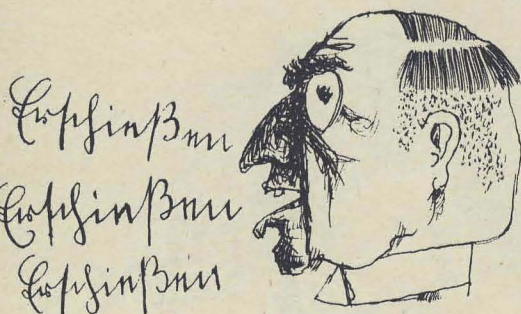 Erschießen
Erschießen
Erschießen